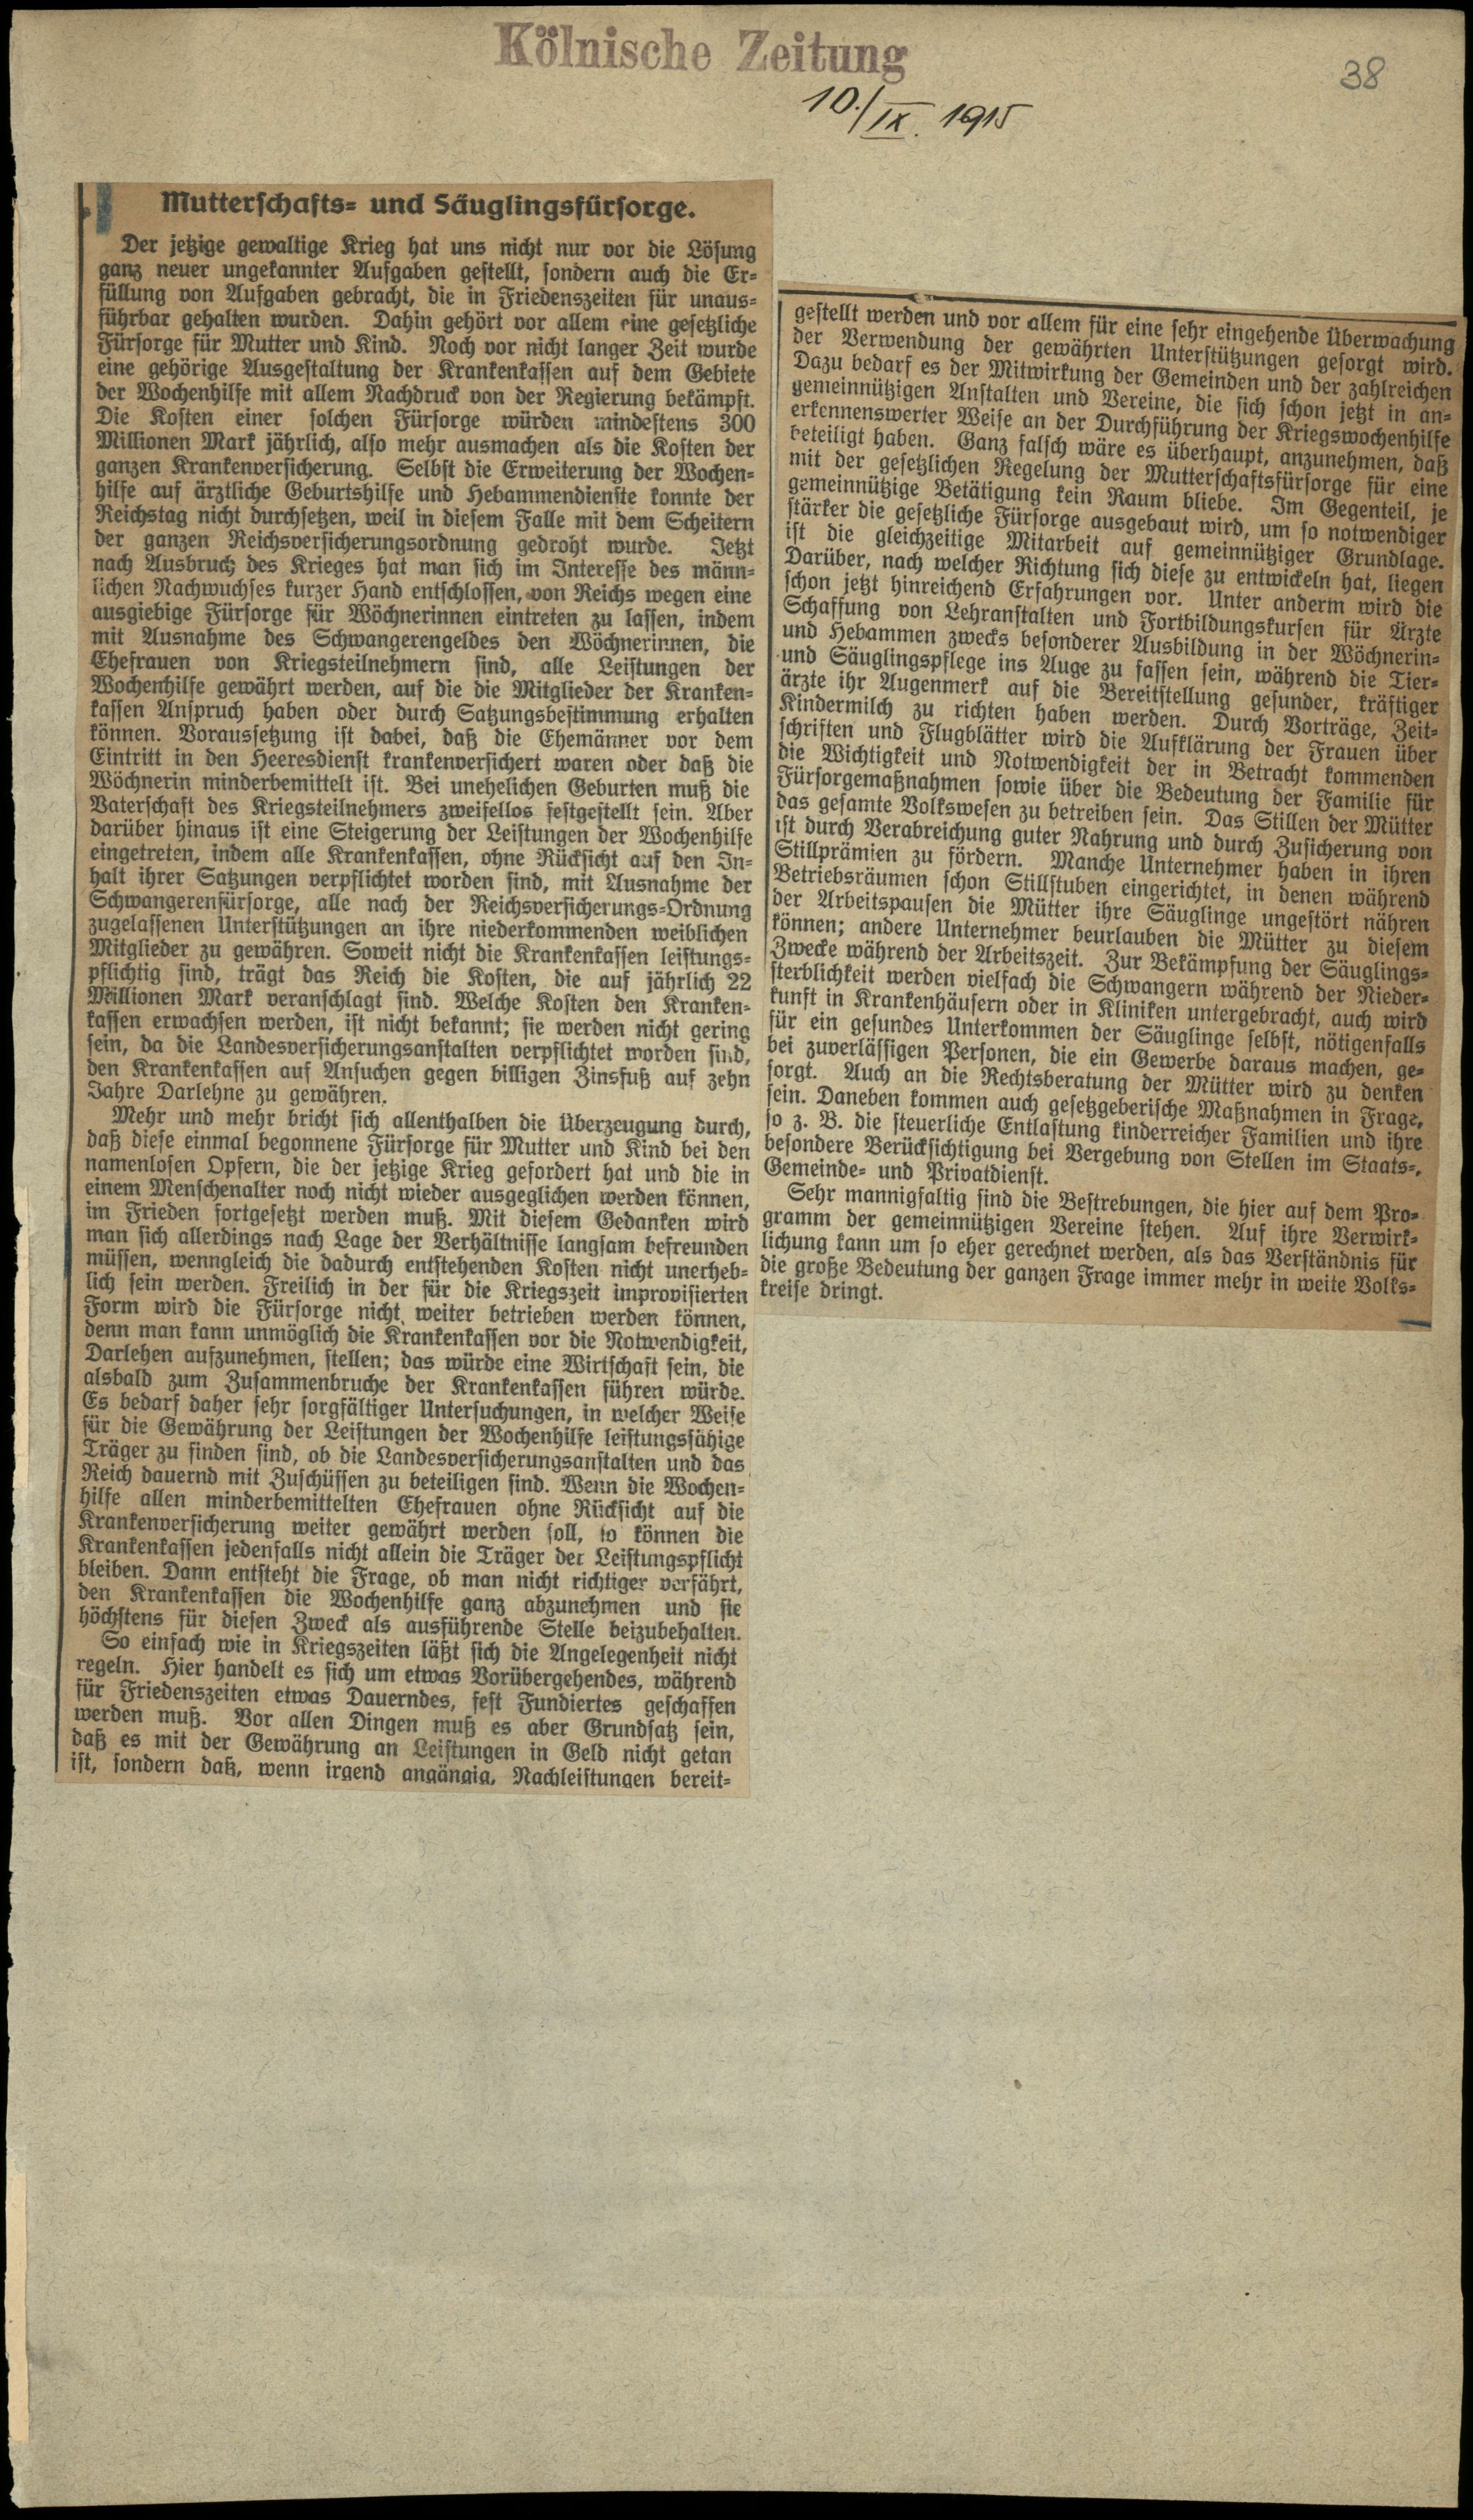 Kölnische Zeitung
38
10./IX. 1915
Mutterschafts- und Säuglingsfürsorge.
Der jetzige gewaltige Krieg hat uns nicht nur vor die Lösung
ganz neuer ungekannter Aufgaben gestellt, sondern auch die Er-
füllung von Aufgaben gebracht, die in Friedenszeiten für unaus-
führbar gehalten wurden. Dahin gehört vor allem eine gesetzliche
Fürsorge für Mutter und Kind. Noch vor nicht langer Zeit wurde
eine gehörige Ausgestaltung der Krankenkassen auf dem Gebiete
der Wochenhilfe mit allem Nachdruck von der Regierung bekämpft.
Die Kosten einer solchen Fürsorge würden mindestens 300
Millionen Mark jährlich, also mehr ausmachen als die Kosten der
ganzen Krankenversicherung. Selbst die Erweiterung der Wochen-
hilfe auf ärztliche Geburtshilfe und Hebammendienste konnte der
Reichstag nicht durchsetzen, weil in diesem Falle mit dem Scheitern
der ganzen Reichsversicherungsordnung gedroht wurde. Jetzt
nach Ausbruch des Krieges hat man sich im Interesse des männ-
lichen Nachwuchses kurzer Hand entschlossen, von Reichs wegen eine
ausgiebige Fürsorge für Wöchnerinnen eintreten zu lassen, indem
mit Ausnahme des Schwangerengeldes den Wöchnerinnen, die
Ehefrauen von Kriegsteilnehmern sind, alle Leistungen der
Wochenhilfe gewährt werden, auf die die Mitglieder der Kranken-
kassen Anspruch haben oder durch Satzungsbestimmung erhalten
können. Voraussetzung ist dabei, daß die Ehemänner vor dem
Eintritt in den Heeresdienst krankenversichert waren oder daß die
Wöchnerin minderbemittelt ist. Bei unehelichen Geburten muß die
Vaterschaft des Kriegsteilnehmers zweifellos festgestellt sein. Aber
darüber hinaus ist eine Steigerung der Leistungen der Wochenhilfe
eingetreten, indem alle Krankenkassen, ohne Rücksicht auf den In-
halt ihrer Satzungen verpflichtet worden sind, mit Ausnahme der
Schwangerenfürsorge, alle nach der Reichsversicherungs-Ordnung
zugelassenen Unterstützungen an ihre niederkommenden weiblichen
Mitglieder zu gewähren. Soweit nicht die Krankenkassen leistungs-
pflichtig sind, trägt das Reich die Kosten, die auf jährlich 22
Millionen Mark veranschlagt sind. Welche Kosten den Kranken-
kassen erwachsen werden, ist nicht bekannt; sie werden nicht gering
sein, da die Landesversicherungsanstalten verpflichtet worden sind,
den Krankenkassen auf Ansuchen gegen billigen Zinsfuß auf zehn
Jahre Darlehne zu gewähren.
Mehr und mehr bricht sich allenthalben die Überzeugung durch,
daß diese einmal begonnene Fürsorge für Mutter und Kind bei den
namenlosen Opfern, die der jetzige Krieg gefordert hat und die in
einem Menschenalter noch nicht wieder ausgeglichen werden können,
im Frieden fortgesetzt werden muß. Mit diesem Gedanken wird
man sich allerdings nach Lage der Verhältnisse langsam befreunden
müssen, wenngleich die dadurch entstehenden Kosten nicht unerheb-
lich sein werden. Freilich in der für die Kriegszeit improvisierten
Form wird die Fürsorge nicht weiter betrieben werden können,
denn man kann unmöglich die Krankenkassen vor die Notwendigkeit,
Darlehen aufzunehmen, stellen; das würde eine Wirtschaft sein, die
alsbald zum Zusammenbruche der Krankenkassen führen würde.
Es bedarf daher sehr sorgfältiger Untersuchungen, in welcher Weise
für die Gewährung der Leistungen der Wochenhilfe leistungsfähige
Träger zu finden sind, ob die Landesversicherungsanstalten und das
Reich dauernd mit Zuschüssen zu beteiligen sind. Wenn die Wochen-
hilfe allen minderbemittelten Ehefrauen ohne Rücksicht auf die
Krankenversicherung weiter gewährt werden soll, so können die
Krankenkassen jedenfalls nicht allein die Träger der Leistungspflicht
bleiben. Dann entsteht die Frage, ob man nicht richtiger verfährt,
den Krankenkassen die Wochenhilfe ganz abzunehmen und sie
höchstens für diesen Zweck als ausführende Stelle beizubehalten.
So einfach wie in Kriegszeiten läßt sich die Angelegenheit nicht
regeln. Hier handelt es sich um etwas Vorübergehendes, während
für Friedenszeiten etwas Dauerndes, fest Fundiertes geschaffen
werden muß. Vor allen Dingen muß es aber Grundsatz sein,
daß es mit der Gewährung an Leistungen in Geld nicht getan
ist, sondern daß, wenn irgend angängig, Nachleistungen bereit-
gestellt werden und vor allem für eine sehr eingehende Überwachung
der Verwendung der gewährten Unterstützungen gesorgt wird.
Dazu bedarf es der Mitwirkung der Gemeinden und der zahlreichen
gemeinnützigen Anstalten und Vereine, die sich schon jetzt in an-
erkennenswerter Weise an der Durchführung der Kriegswochenhilfe
beteiligt haben. Ganz falsch wäre es überhaupt, anzunehmen, daß
mit der gesetzlichen Regelung der Mutterschaftsfürsorge für eine
gemeinnützige Betätigung kein Raum bliebe. Im Gegenteil, je
stärker die gesetzliche Fürsorge ausgebaut wird, um so notwendiger
ist die gleichzeitige Mitarbeit auf gemeinnütziger Grundlage.
Darüber, nach welcher Richtung sich diese zu entwickeln hat, liegen
schon jetzt hinreichend Erfahrungen vor. Unter anderm wird die
Schaffung von Lehranstalten und Fortbildungskursen für Ärzte
und Hebammen zwecks besonderer Ausbildung in der Wöchnerin-
und Säuglingspflege ins Auge zu fassen sein, während die Tier-
ärzte ihr Augenmerk auf die Bereitstellung gesunder, kräftiger
Kindermilch zu richten haben werden. Durch Vorträge, Zeit-
schriften und Flugblätter wird die Aufklärung der Frauen über
die Wichtigkeit und Notwendigkeit der in Betracht kommenden
Fürsorgemaßnahmen sowie über die Bedeutung der Familie für
das gesamte Volkswesen zu betreiben sein. Das Stillen der Mütter
ist durch Verabreichung guter Nahrung und durch Zusicherung von
Stillprämien zu fördern. Manche Unternehmer haben in ihren
Betriebsräumen schon Stillstuben eingerichtet, in denen während
der Arbeitspausen die Mütter ihre Säuglinge ungestört nähren
können; andere Unternehmer beurlauben die Mütter zu diesem
Zwecke während der Arbeitszeit. Zur Bekämpfung der Säuglings-
sterblichkeit werden vielfach die Schwangern während der Nieder-
kunft in Krankenhäusern oder in Kliniken untergebracht, auch wird
für ein gesundes Unterkommen der Säuglinge selbst, nötigenfalls
bei zuverlässigen Personen, die ein Gewerbe daraus machen, ge-
sorgt. Auch an die Rechtsberatung der Mütter wird zu denken
sein. Daneben kommen auch gesetzgeberische Maßnahmen in Frage,
so z. B. die steuerliche Entlastung kinderreicher Familien und ihre
besondere Berücksichtigung bei Vergebung von Stellen im Staats-,
Gemeinde- und Privatdienst.
Sehr mannigfaltig sind die Bestrebungen, die hier auf dem Pro-
gramm der gemeinnützigen Vereine stehen. Auf ihre Verwirk-
lichung kann um so eher gerechnet werden, als das Verständnis für
die große Bedeutung der ganzen Frage immer mehr in weite Volks-
kreise dringt.